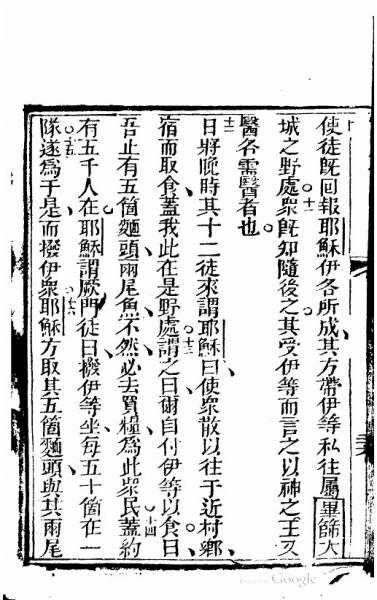 十 使徒旣回報耶穌伊各所成其方帶伊等私往屬畢篩大
城之野處十一衆旣知隨後之其受伊等而言之以神之王又
醫各需醫者也
十二 日將晚時其十二徒來謂耶穌曰使衆散以往于近村鄉
宿而取食蓋我此在是野處十三謂之曰爾自付伊等以食曰
吾止有五箇麵頭兩尾魚不然必去買糧爲此衆民十四蓋約
有五千人在耶穌謂厥門徒曰撥伊等坐每五十箇在一
隊十五遂爲于是而撥伊衆十六耶穌方取其五箇麵頭與其兩尾
Google